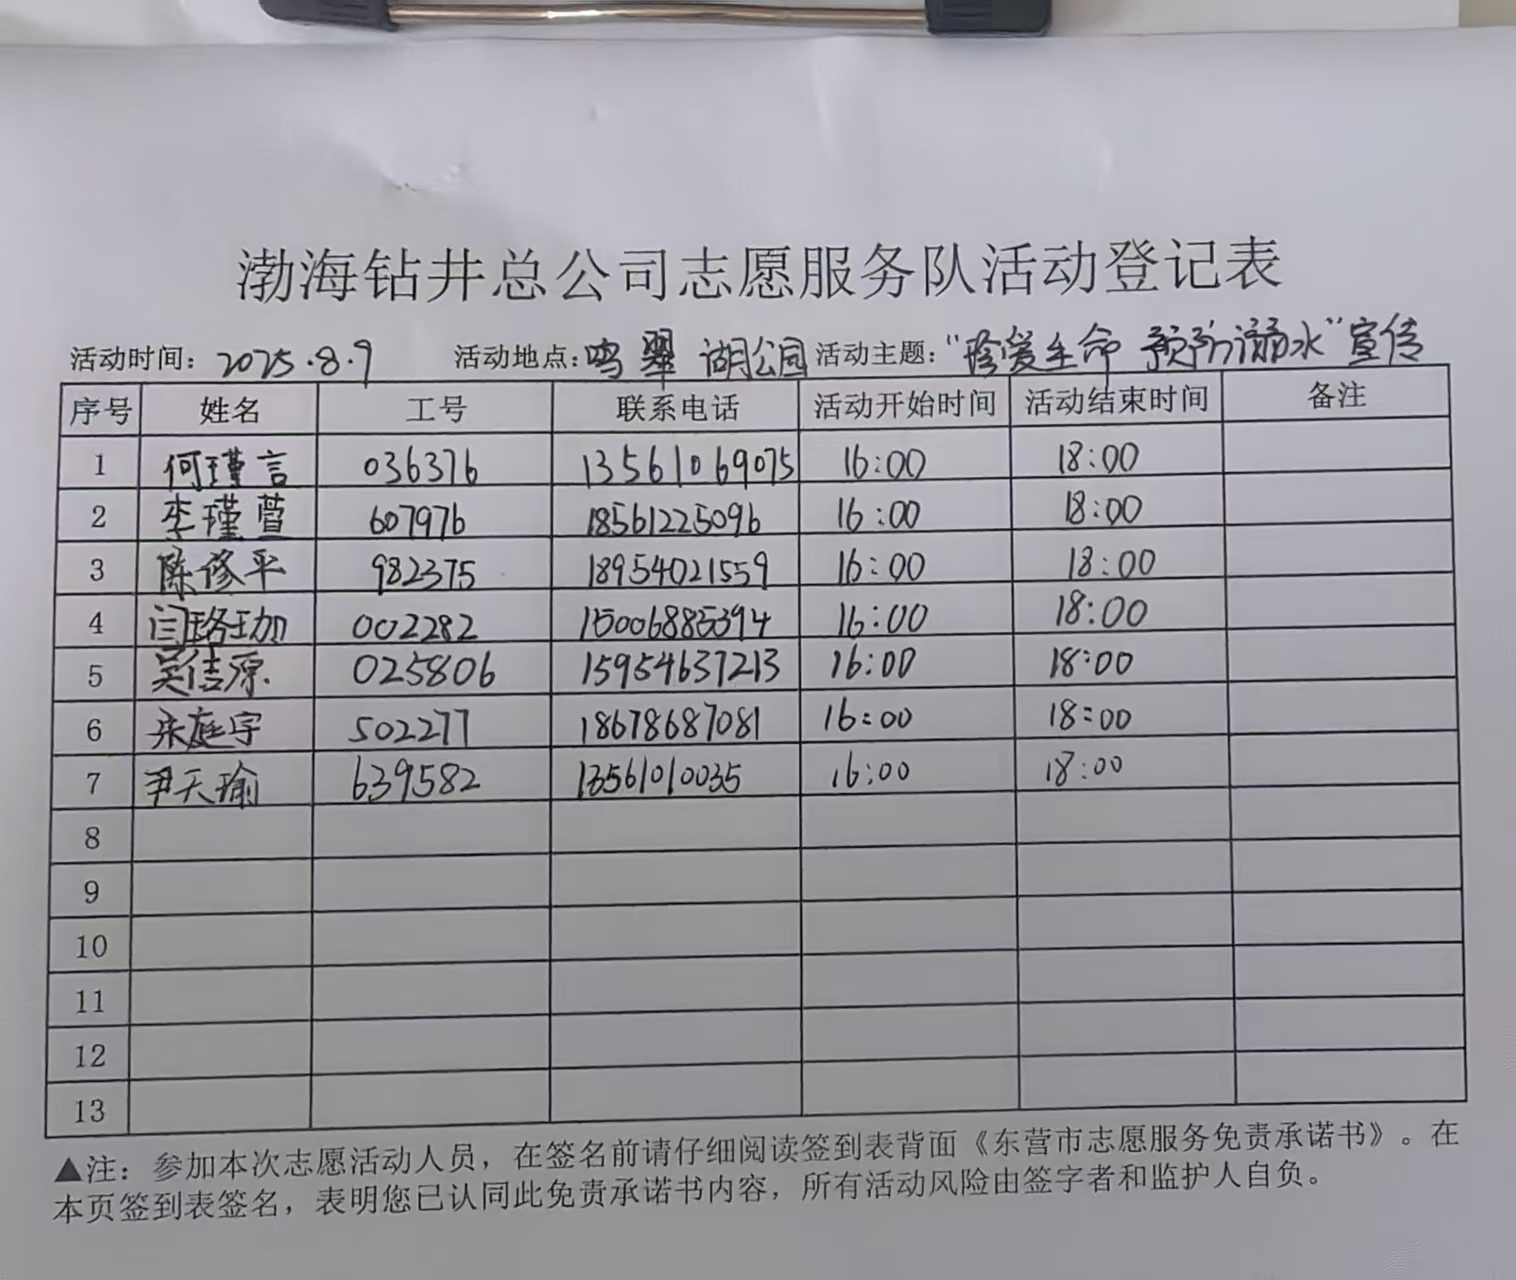 渤海钻井总公司志愿服务队活动登记表
活动时间：2025.8.9 活动地点：鸣翠湖公园 活动主题：“珍爱生命 预防溺水”宣传
序号 姓名 工号 联系电话 活动开始时间 活动结束时间 备注
1 何瑾言 036376 13561069075 16:00 18:00
2 李瑾萱 607976 18561225096 16:00 18:00
3 陈修平 982375 18954021559 16:00 18:00
4 闫珞珈 002282 15006885394 16:00 18:00
5 吴佳源 025806 15954637213 16:00 18:00
6 宋庭宇 502277 18678687081 16:00 18:00
7 尹天瑜 639582 13561010035 16:00 18:00
8
9
10
11
12
13
▲注：参加本次志愿活动人员，在签名前请仔细阅读签到表背面《东营市志愿服务免责承诺书》。在
本页签到表签名，表明您已认同此免责承诺书内容，所有活动风险由签字者和监护人自负。